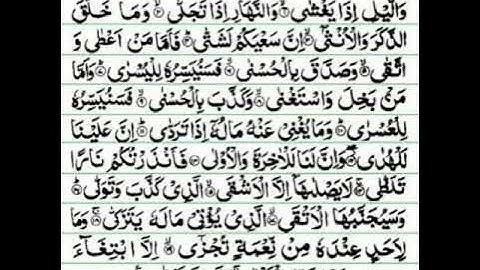 وَالَّيْلِ اِذَا يَغْشٰى ۙ﴿۱﴾ وَالنَّهَارِ اِذَا تَجَلّٰى ۙ﴿۲﴾ وَمَا خَلَقَ
الذَّكَرَ وَالْاُنْثٰٓى ۙ﴿۳﴾ اِنَّ سَعْيَكُمْ لَشَتّٰى ؕ﴿۴﴾ فَاَمَّا مَنْ اَعْطٰى وَ
اتَّقٰى ۙ﴿۵﴾ وَصَدَّقَ بِالْحُسْنٰى ۙ﴿۶﴾ فَسَنُيَسِّرُهٗ لِلْيُسْرٰى ؕ﴿۷﴾ وَاَمَّا
مَنْۢ بَخِلَ وَاسْتَغْنٰى ۙ﴿۸﴾ وَكَذَّبَ بِالْحُسْنٰى ۙ﴿۹﴾ فَسَنُيَسِّرُهٗ
لِلْعُسْرٰى ؕ﴿۱۰﴾ وَمَا يُغْنِىْ عَنْهُ مَالُهٗۤ اِذَا تَرَدّٰى ؕ﴿۱۱﴾ اِنَّ عَلَيْنَا
لَلْهُدٰى ۖ﴿۱۲﴾ وَاِنَّ لَنَا لَلْاٰخِرَةَ وَالْاُوْلٰى ﴿۱۳﴾ فَاَنْذَرْتُكُمْ نَارًا
تَلَظّٰى ۚ﴿۱۴﴾ لَا يَصْلٰىهَاۤ اِلَّا الْاَشْقَى ۙ﴿۱۵﴾ الَّذِىْ كَذَّبَ وَتَوَلّٰى ؕ﴿۱۶﴾
وَسَيُجَنَّبُهَا الْاَتْقَى ۙ﴿۱۷﴾ الَّذِىْ يُؤْتِىْ مَالَهٗ يَتَزَكّٰى ۚ﴿۱۸﴾ وَمَا
لِاَحَدٍ عِنْدَهٗ مِنْ نِّعْمَةٍ تُجْزٰٓى ۙ﴿۱۹﴾ اِلَّا ابْتِغَآءَ